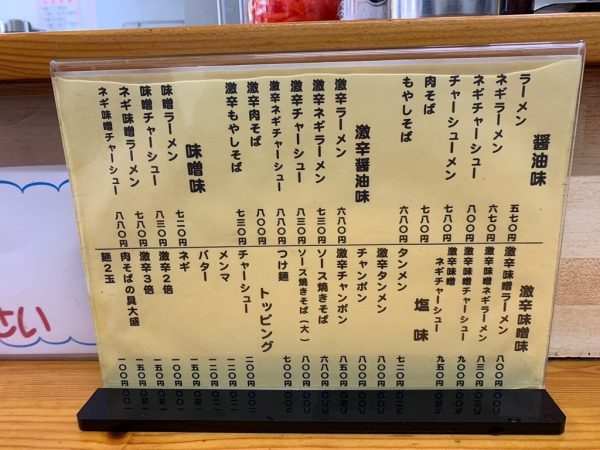 醤油味
ラーメン 五七〇円
ネギラーメン 六七〇円
ネギチャーシュー
チャーシューメン
肉そば 七八〇円
もやしそば 六八〇円
激辛醤油味
激辛ラーメン 六八〇円
激辛ネギラーメン 七三〇円
激辛チャーシュー 八三〇円
激辛ネギチャーシュー 七八〇円
激辛肉そば 八〇〇円
激辛もやしそば 七三〇円
味噌味
味噌ラーメン 七二〇円
味噌チャーシュー 八三〇円
ネギ味噌ラーメン 七八〇円
ネギ味噌チャーシュー 八八〇円
激辛味噌味
激辛味噌ラーメン 八〇〇円
激辛味噌ネギラーメン 八三〇円
激辛味噌チャーシュー 九〇〇円
激辛味噌ネギチャーシュー 九五〇円
塩味
タンメン 七二〇円
激辛タンメン 八〇〇円
チャンポン 八〇〇円
激辛チャンポン 八五〇円
ソース焼きそば 六八〇円
ソース焼きそば(大) 八〇〇円
つけ麺 七〇〇円
トッピング
チャーシュー 二〇〇円
メンマ 一二〇円
バター 一二〇円
ネギ 一五〇円
激辛2倍 一〇〇円
激辛3倍 一五〇円
肉そばの具大盛 一五〇円
麺2玉 一〇〇円
さい